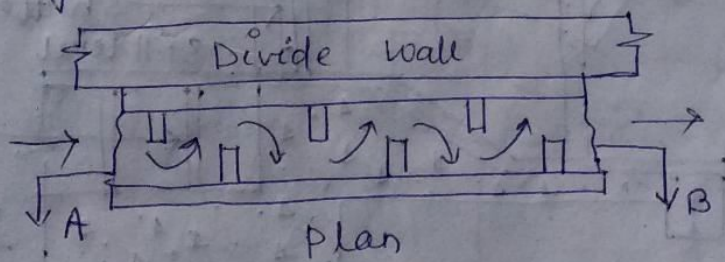 Divide wall
A
B
plan